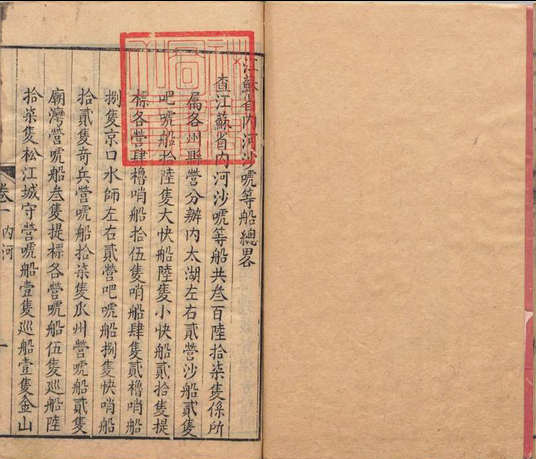 江蘇省内河沙唬等船總畧
查江蘇省内河沙唬等船共叁百陸拾柒隻係所
屬各州縣營分辦内太湖左右貳營沙船貳隻
吧唬船拾陸隻大快船陸隻小快船貳拾隻提
標各營肆櫓哨船拾伍隻哨船肆隻貳櫓哨船
捌隻京口水師左右貳營吧唬船捌隻快哨船
拾貳隻奇兵營唬船拾柒隻瓜州營唬船貳隻
廟灣營唬船叁隻提標各營唬船伍隻巡船陸
拾柒隻松江城守營唬船壹隻巡船壹隻金山
卷一 内河